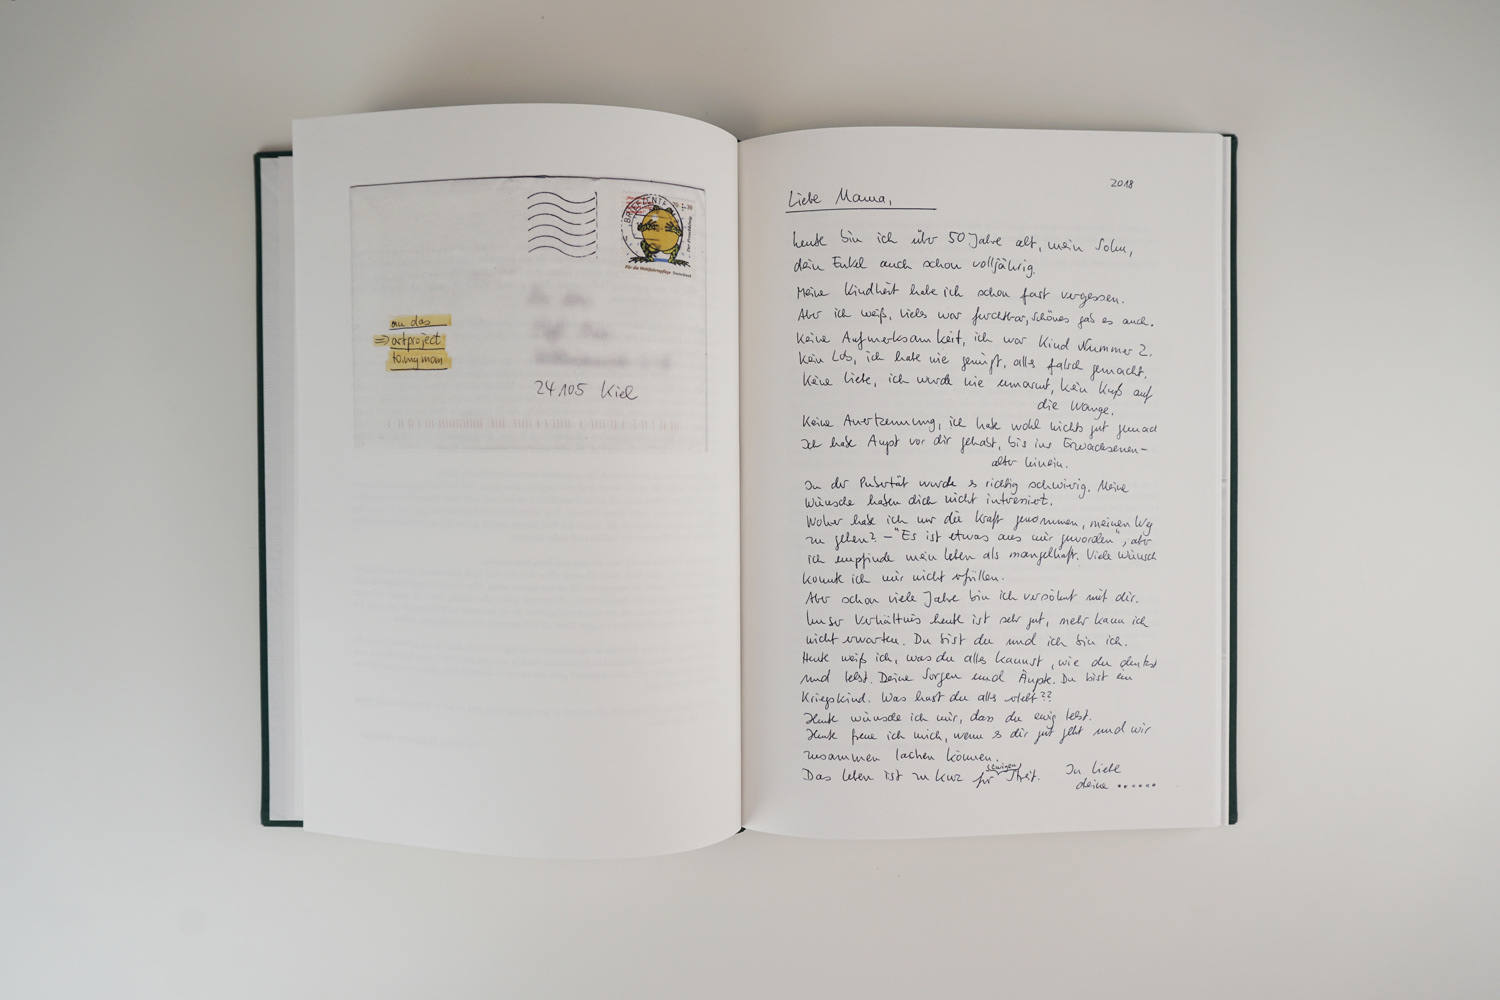 BRIEFZENTR
Der Froschkönig
Für die Wohlfahrtspflege Deutschland
an das
=> artproject
to.my.mom
24105 Kiel
2018
Liebe Mama,
heute bin ich über 50 Jahre alt, mein Sohn,
dein Enkel auch schon volljährig.
Meine Kindheit habe ich schon fast vergessen.
Aber ich weiß, vieles war furchtbar, schönes gab es auch.
Keine Aufmerksamkeit, ich war Kind Nummer 2.
Kein Lob, ich habe nie genügt, alles falsch gemacht.
Keine Liebe, ich wurde nie umarmt, kein Kuß auf
die Wange.
Keine Anerkennung, ich habe wohl nichts gut gemacht
Ich habe Angst vor dir gehabt, bis ins Erwachsenen-
alter hinein.
In der Pubertät wurde es richtig schwierig. Meine
Wünsche haben dich nicht interessiert.
Woher habe ich nur die Kraft genommen, meinen Weg
zu gehen? – "Es ist etwas aus mir geworden", aber
ich empfinde mein Leben als mangelhaft. Viele Wünsche
konnte ich mir nicht erfüllen.
Aber schon viele Jahre bin ich versöhnt mit dir.
Unser Verhältnis heute ist sehr gut, mehr kann ich
nicht erwarten. Du bist du und ich bin ich.
Heute weiß ich, was du alles kannst, wie du denkst
und lebst. Deine Sorgen und Ängste. Du bist ein
Kriegskind. Was hast du alles erlebt??
Heute wünsche ich mir, dass du ewig lebst.
Heute freue ich mich, wenn es dir gut geht und wir
zusammen lachen können.
Das Leben ist zu kurz für (ewigen) Streit.
In Liebe
deine ......